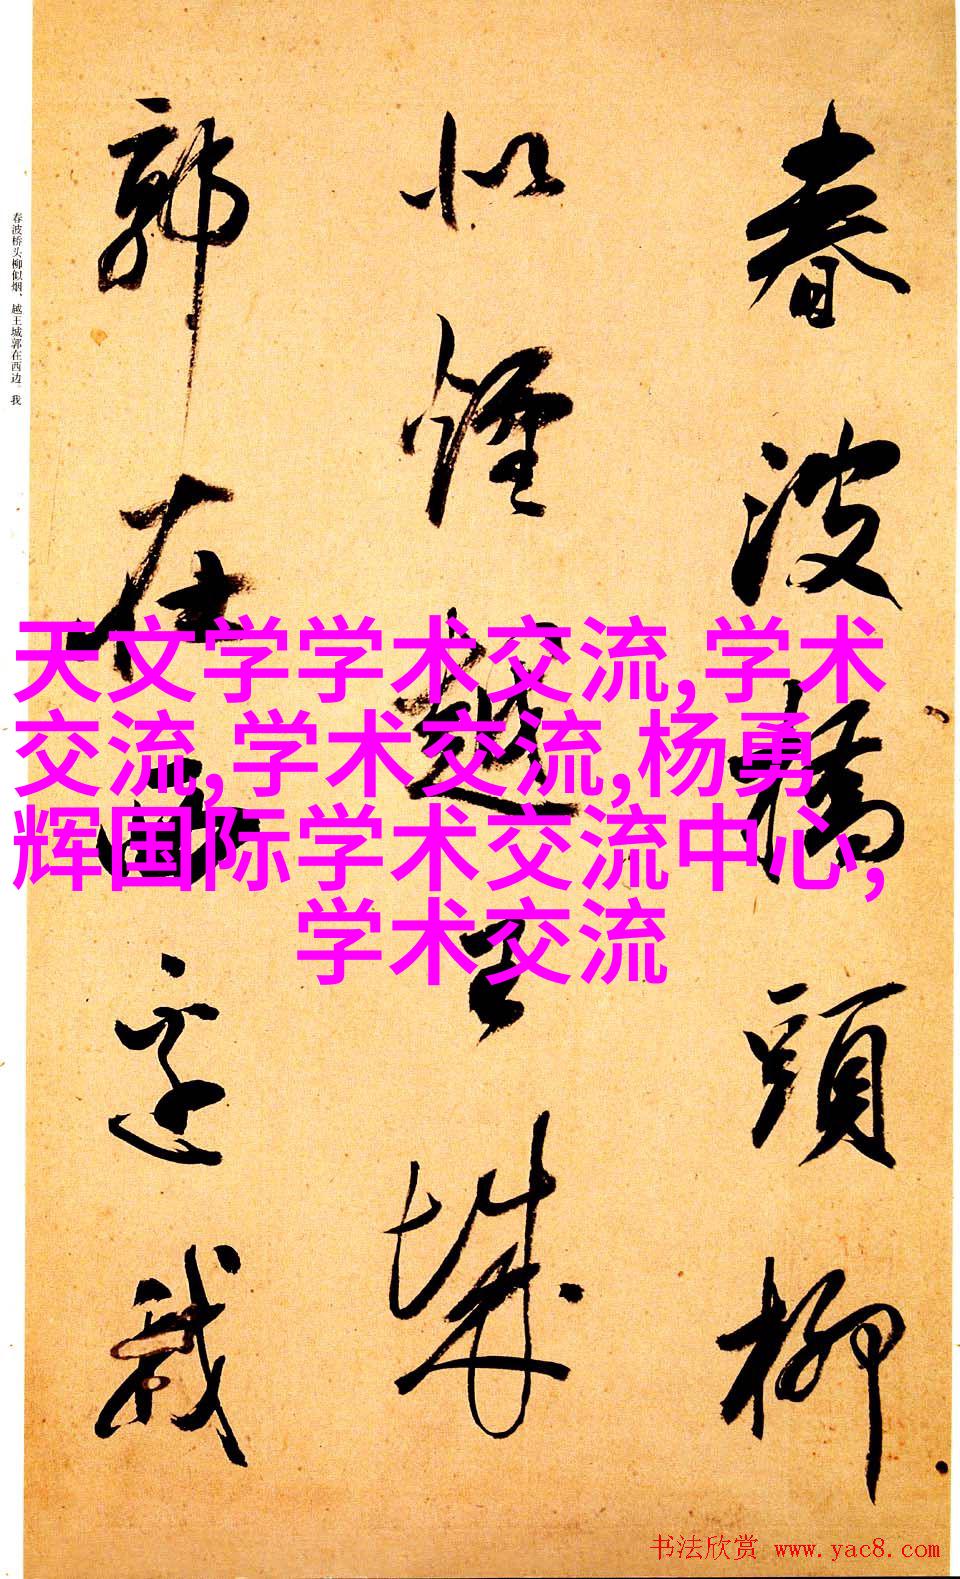 春波橋頭柳
似煙越王城
郭在西边我
春波桥头柳似烟、越王城郭在西边。我
天文学学术交流,学术
交流,学术交流,杨勇
辉国际学术交流中心,
学术交流
书法欣赏 www.yac8.com